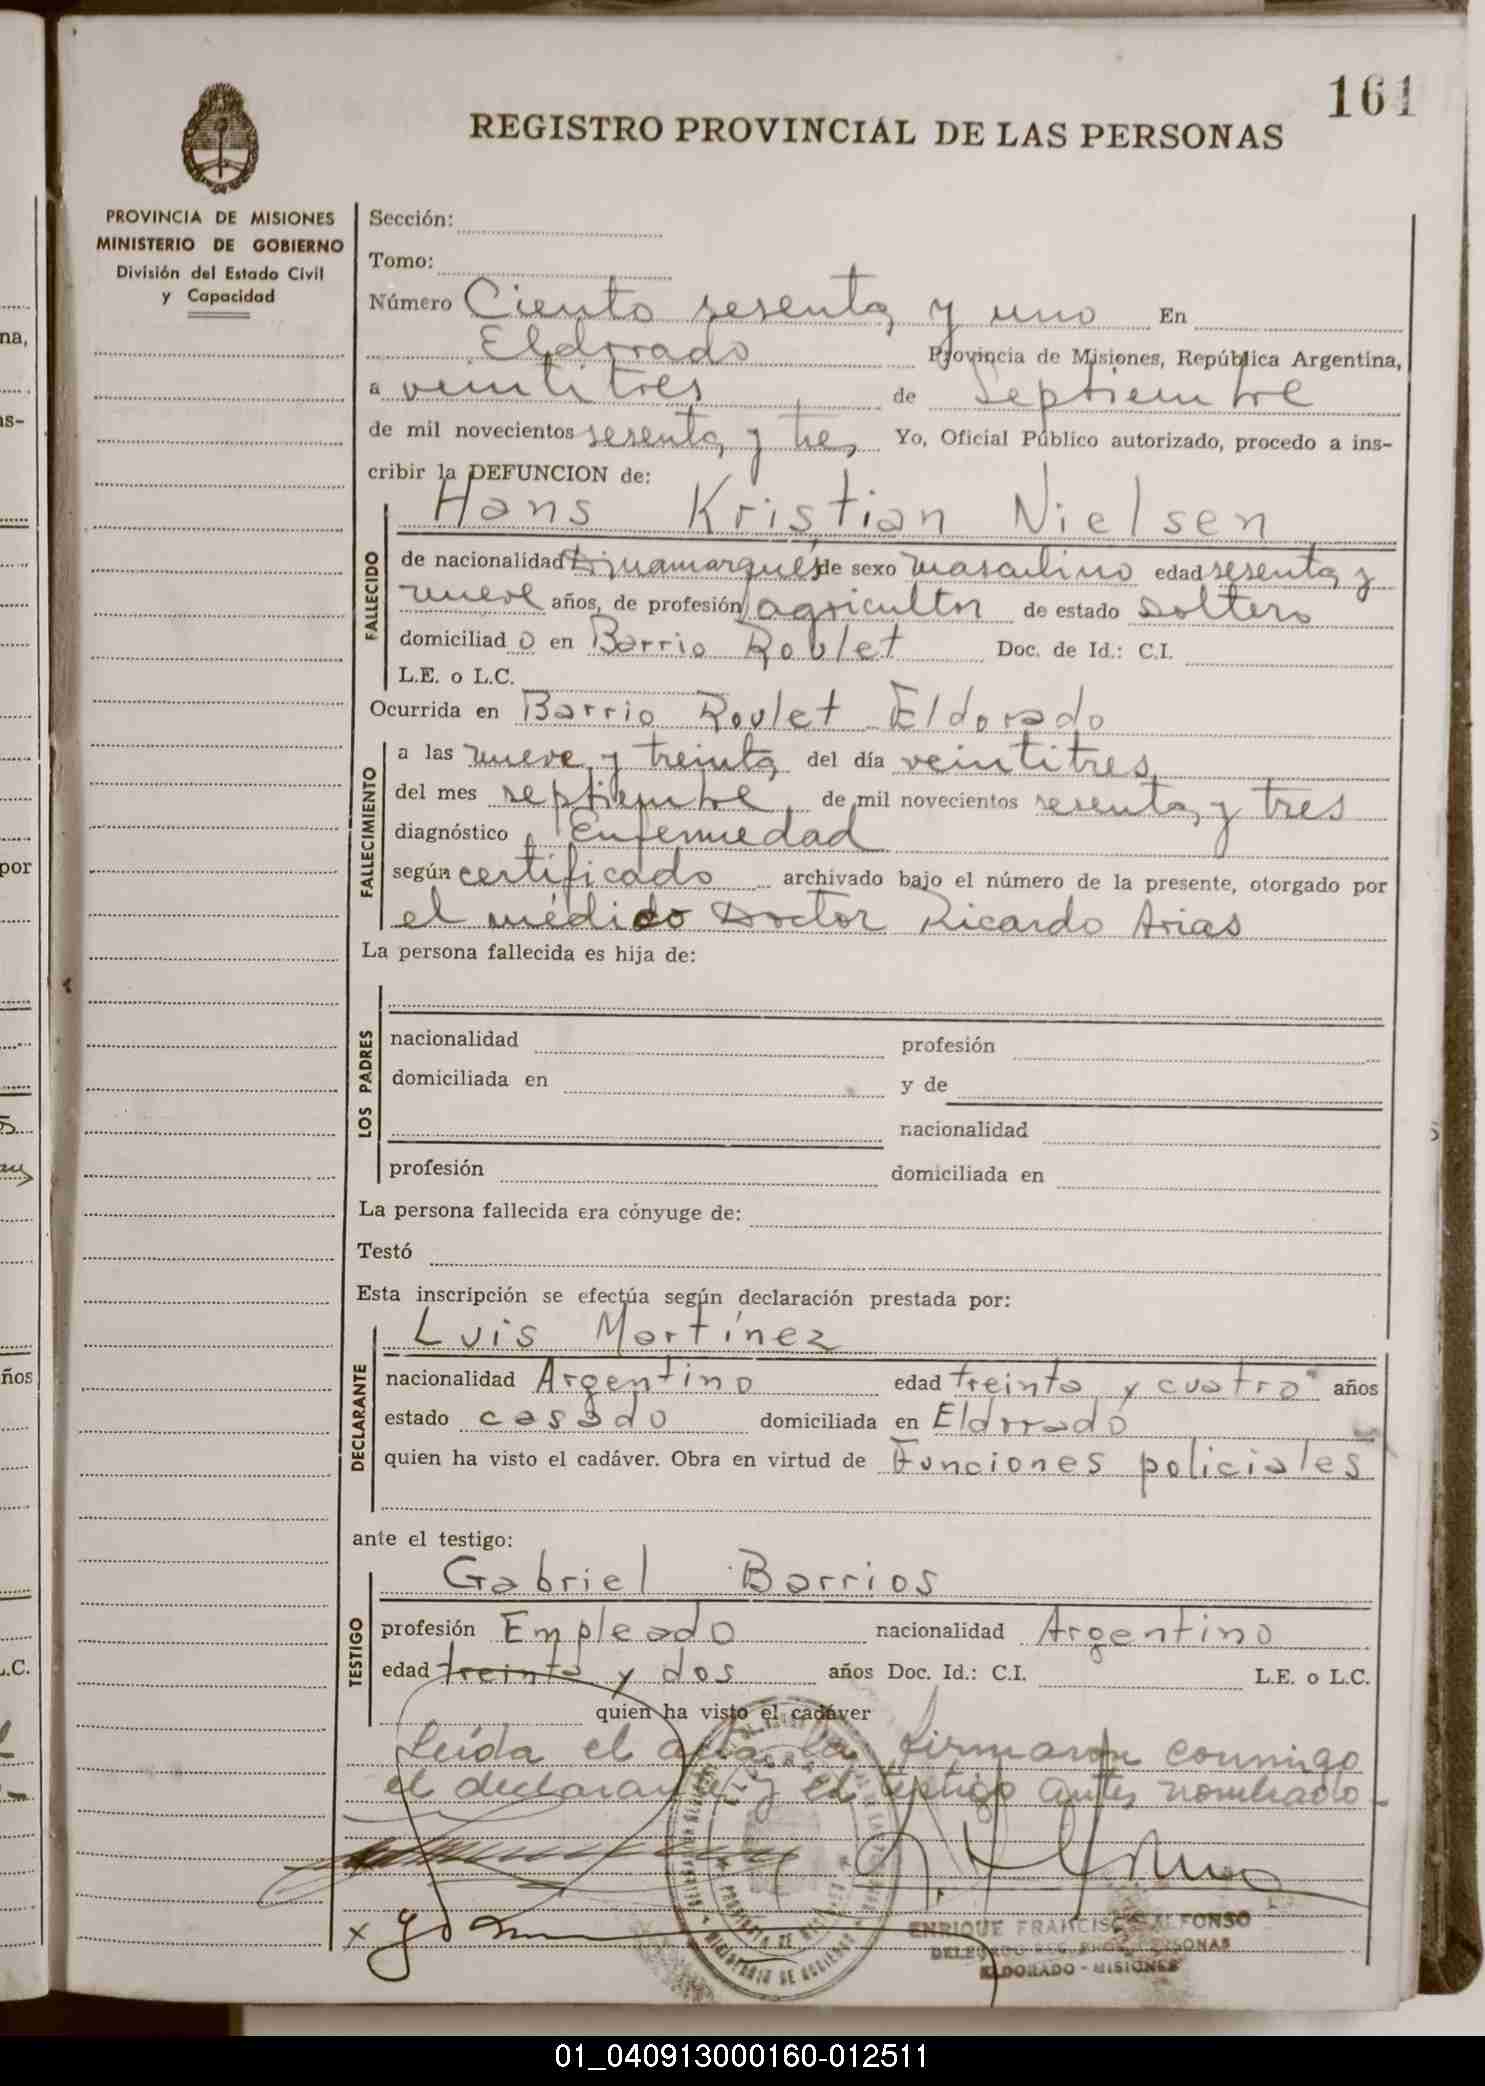 161
REGISTRO PROVINCIAL DE LAS PERSONAS
PROVINCIA DE MISIONES
MINISTERIO DE GOBIERNO
División del Estado Civil
y Capacidad
Sección:
Tomo:
Número Ciento sesenta y uno En
Eldorado Provincia de Misiones, República Argentina,
a veintitres de Septiembre
de mil novecientos sesenta y tres Yo, Oficial Público autorizado, procedo a ins-
cribir la DEFUNCION de:
Hans Kristian Nielsen
FALLECIDO
de nacionalidad dinamarqués de sexo masculino edad sesenta y
nueve años, de profesión agricultor de estado soltero
domiciliad o en Barrio Roulet Doc. de Id.: C.I.
L.E. o L.C.
Ocurrida en Barrio Roulet Eldorado
FALLECIMIENTO
a las nueve y treinta del día veintitres
del mes septiembre de mil novecientos sesenta y tres
diagnóstico Enfermedad
según certificado archivado bajo el número de la presente, otorgado por
el médico Doctor Ricardo Arias
La persona fallecida es hija de:
LOS PADRES
nacionalidad profesión
domiciliada en y de
nacionalidad
profesión domiciliada en
La persona fallecida era cónyuge de:
Testó
Esta inscripción se efectúa según declaración prestada por:
Luis Martínez
DECLARANTE
nacionalidad Argentino edad treinta y cuatro años
estado casado domiciliada en Eldorado
quien ha visto el cadáver. Obra en virtud de Funciones policiales
ante el testigo:
Gabriel Barrios
TESTIGO
profesión Empleado nacionalidad Argentino
edad treinta y dos años Doc. Id.: C.I. L.E. o L.C.
quien ha visto el cadáver
Leída el acta la firmaron conmigo
el declarante y el testigo antes nombrado-
ENRIQUE FRANCISCO ALFONSO
DELEGADO REG. PROV. PERSONAS
ELDORADO - MISIONES
na,
as-
por
ños
L.C.
01_040913000160-012511